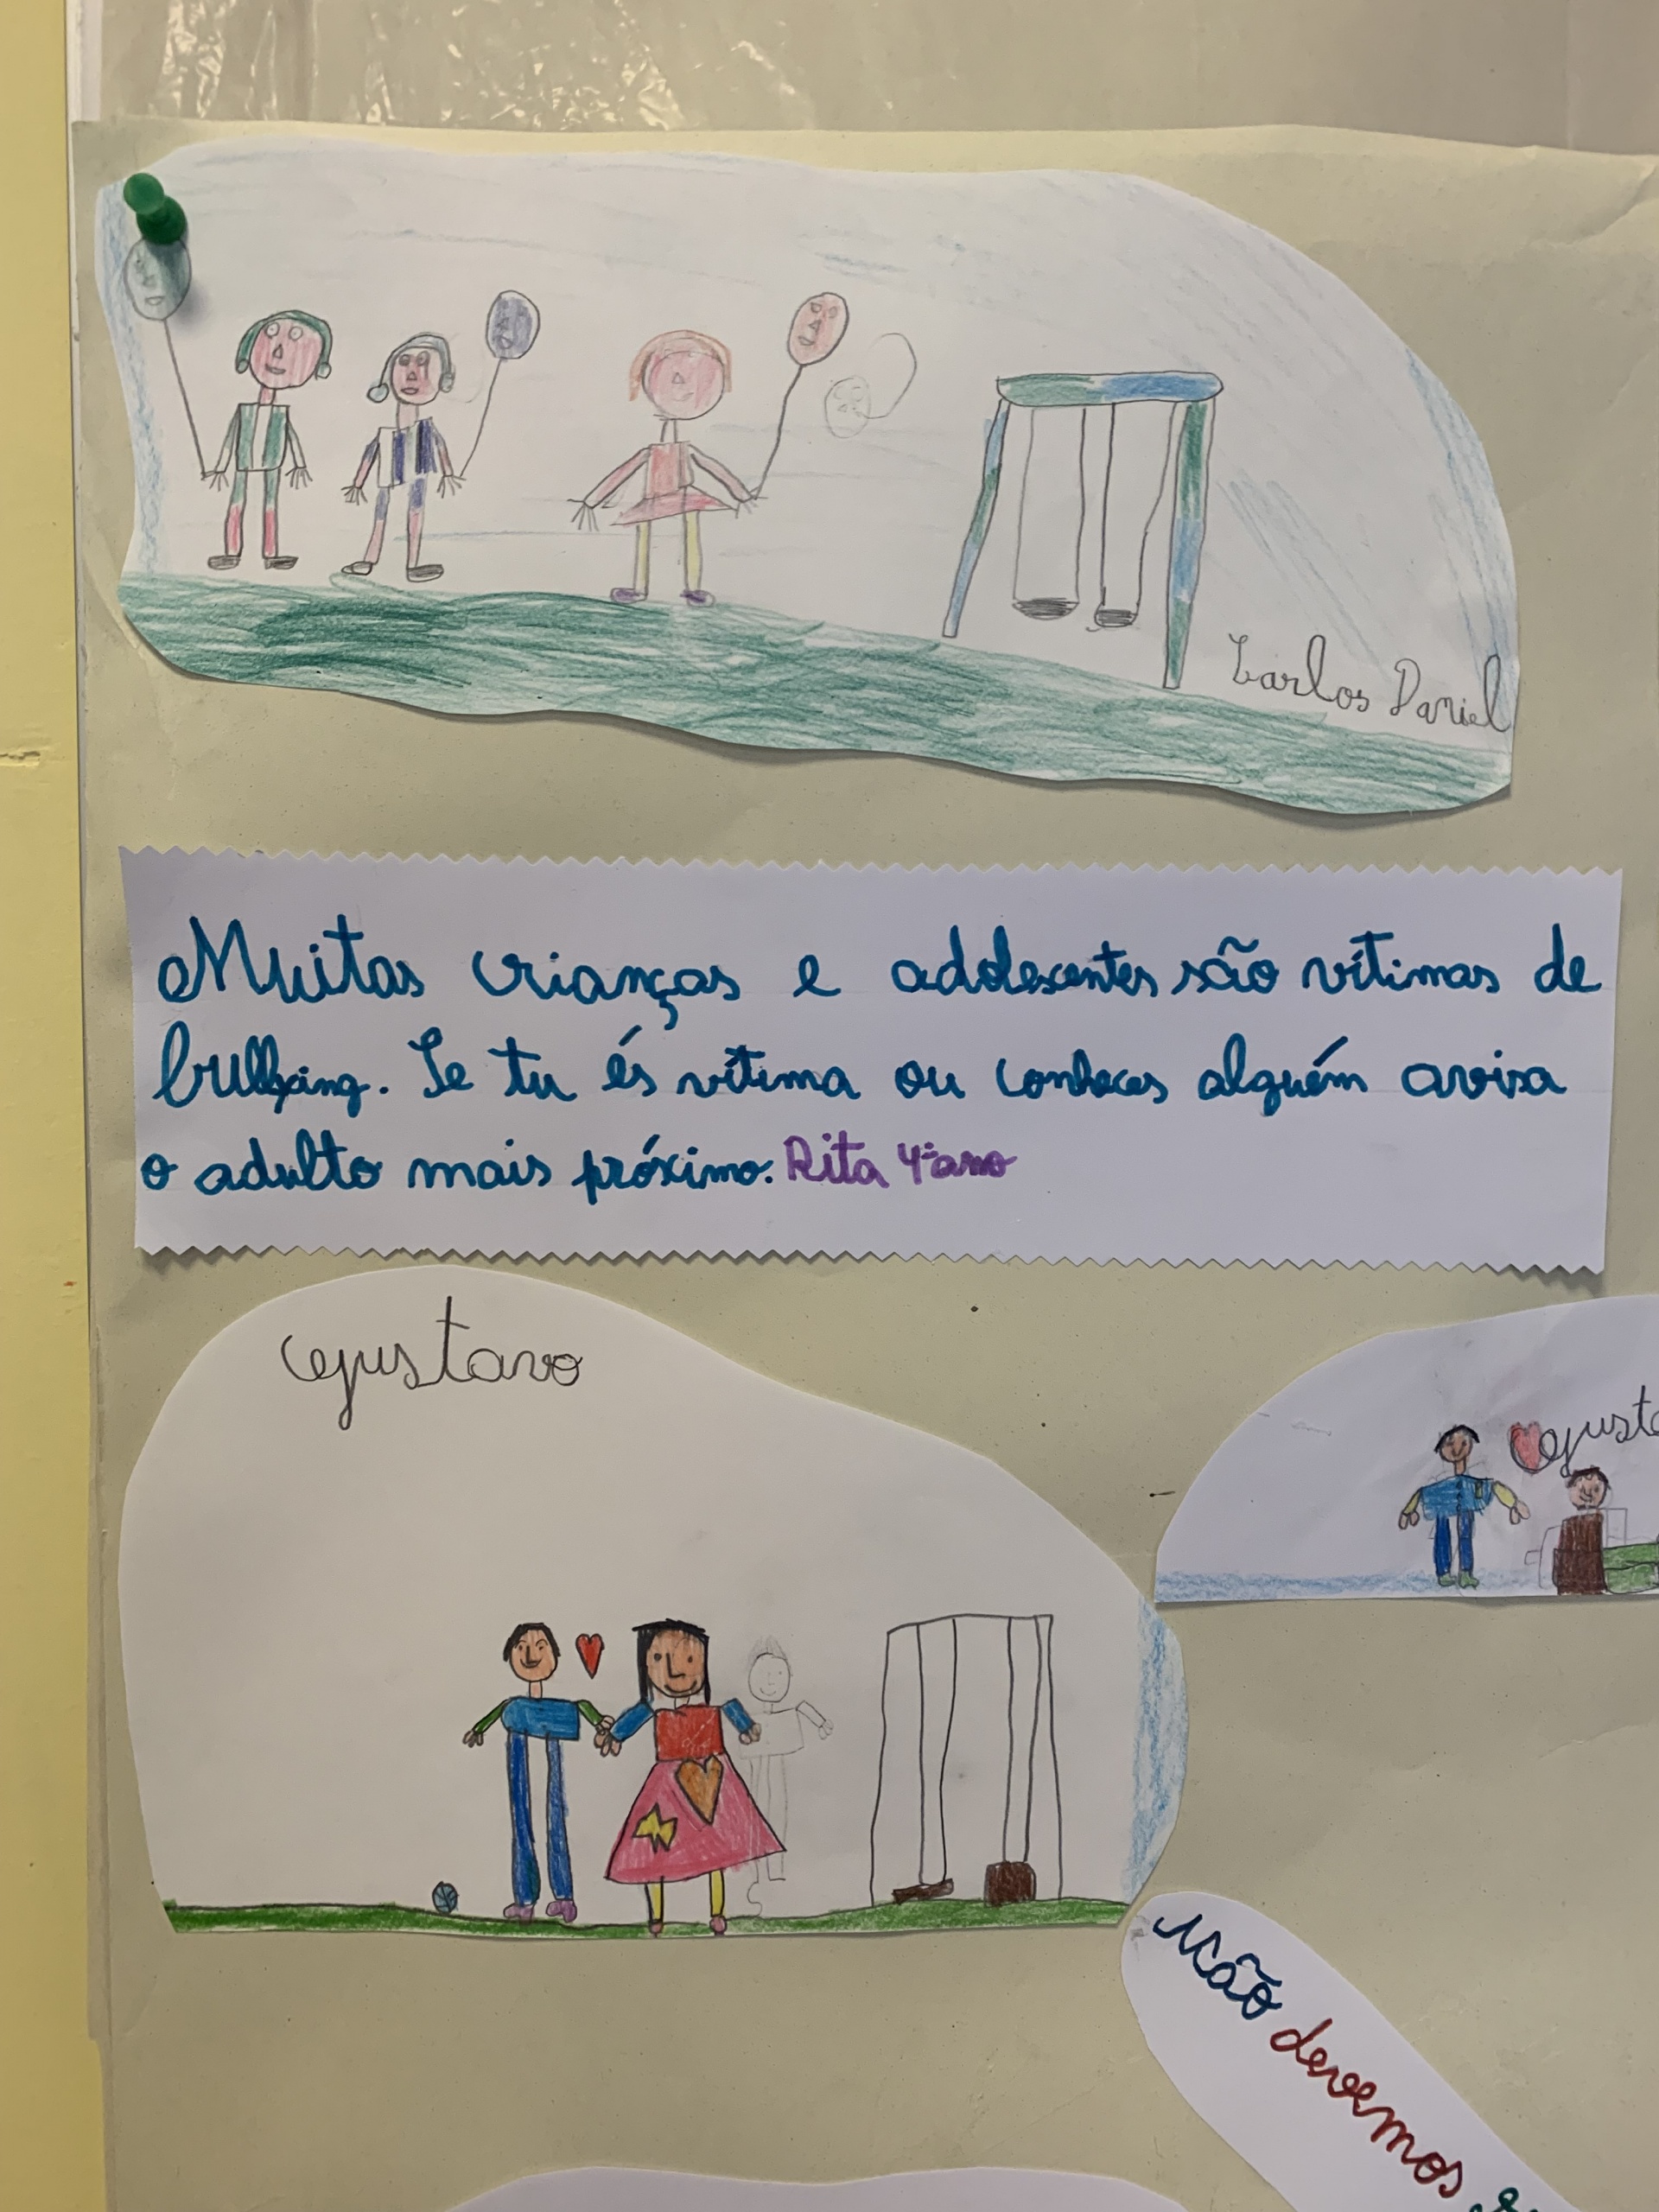 Carlos Daniel
Muitas crianças e adolescentes são vítimas de
bullying. Se tu és vítima ou conheces alguém avisa
o adulto mais próximo. Rita 4º ano
Gustavo
Gusta
Não devemos